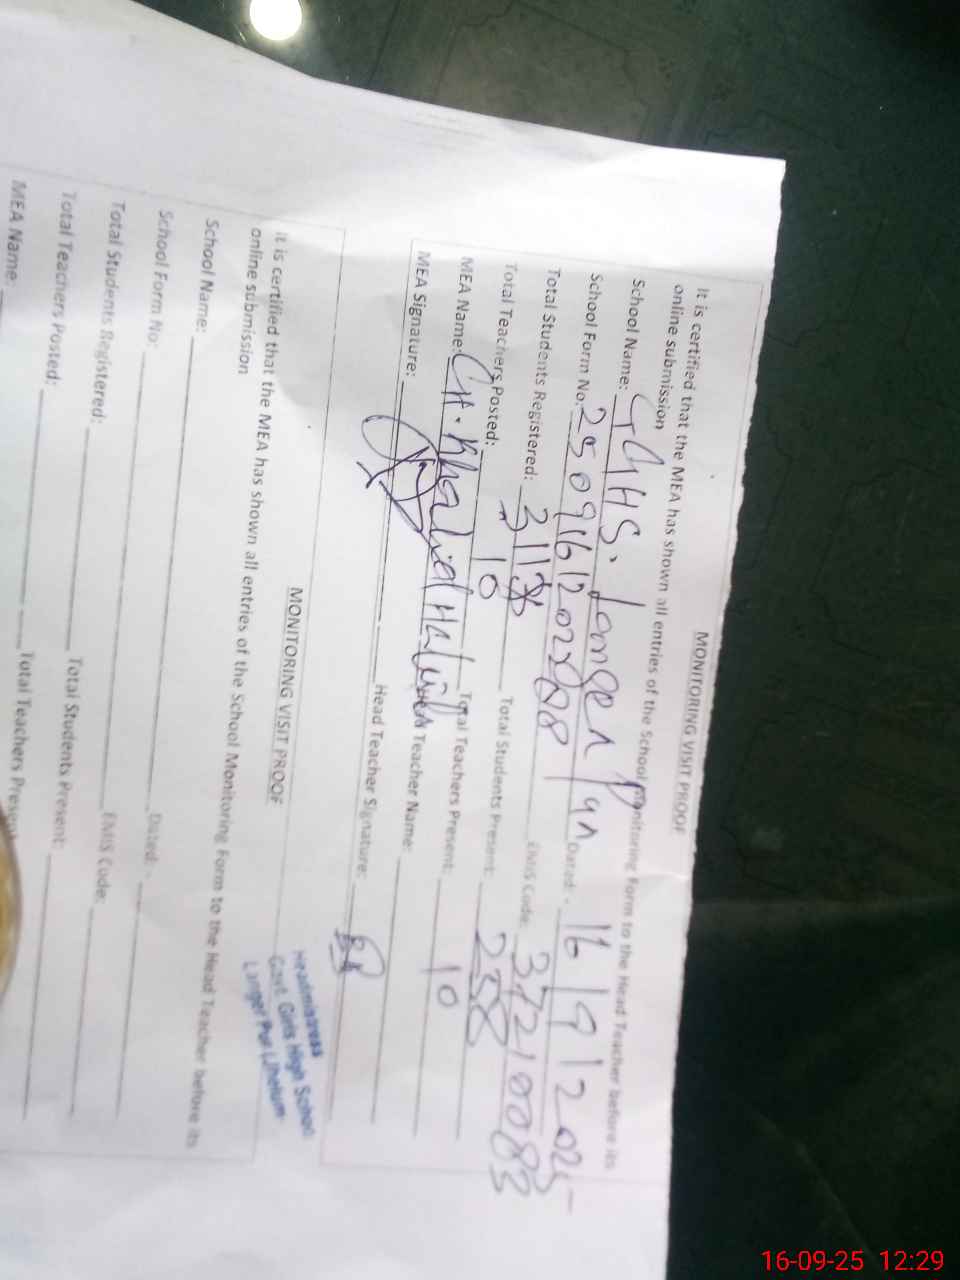 MONITORING VISIT PROOF
It is certified that the MEA has shown all entries of the School Monitoring Form to the Head Teacher before its
online submission
School Name: GGHS. Langer Pur Dated: - 16/9/2025
School Form No: EMIS Code: 37210083
Total Students Registered: Total Students Present: 258
Total Teachers Posted: 10 Total Teachers Present: 10
MEA Name: CH. Khalid Teacher Name:
MEA Signature: Head Teacher Signature:
Headmistress
Govt. Girls High School
Langer Pur Jhelum
MONITORING VISIT PROOF
It is certified that the MEA has shown all entries of the School Monitoring Form to the Head Teacher before its
online submission
School Name:
School Form No: Dated: -
Total Students Registered: EMIS Code:
Total Teachers Posted: Total Students Present:
MEA Name: Total Teachers Present
16-09-25 12:29